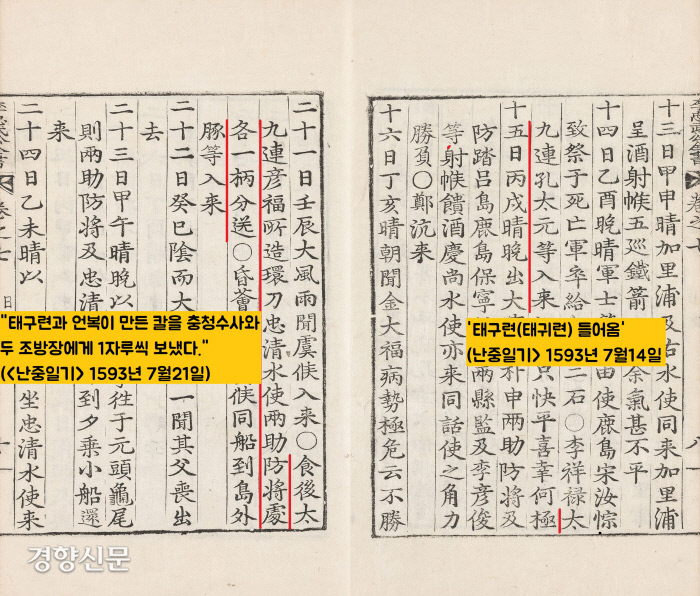 十三日甲申晴加里浦及右水使同来加里浦
呈酒射帿五巡鐵箭
余氣甚不平
十四日乙酉晚晴軍士
由使鹿島宋汝悰
致祭于死亡軍卒給
二石〇李祥祿太
九連孔大元等入来
只快平喜幸何極
十五日丙戌晴晚出大
朴申兩助防將及
防踏呂島鹿島保寧
兩縣監及李彦俊
等射帿饋酒慶尚水使亦来同話使之角力
勝負〇鄭沆来
十六日丁亥晴朝聞金大福病勢極危云不勝
'태구련(태귀련) 들어옴'
(난중일기> 1593년 7월14일
二十一日壬辰大風雨聞虞侯入来〇食後太
九連彦福所造環刀忠清水使兩助防將處
各一柄分送〇昏薈
侯同船到島外
豚等入来
二十二日癸巳陰而大
一聞其父喪出
去
二十三日甲午晴晚以
徃于元頭龜尾
則兩助防將及忠清
到夕乗小船還
来
二十四日乙未晴以
坐忠清水使来
卷之七
"태구련과 언복이 만든 칼을 충청수사와
두 조방장에게 1자루씩 보냈다."
(<난중일기> 1593년 7월21일)
경향신문